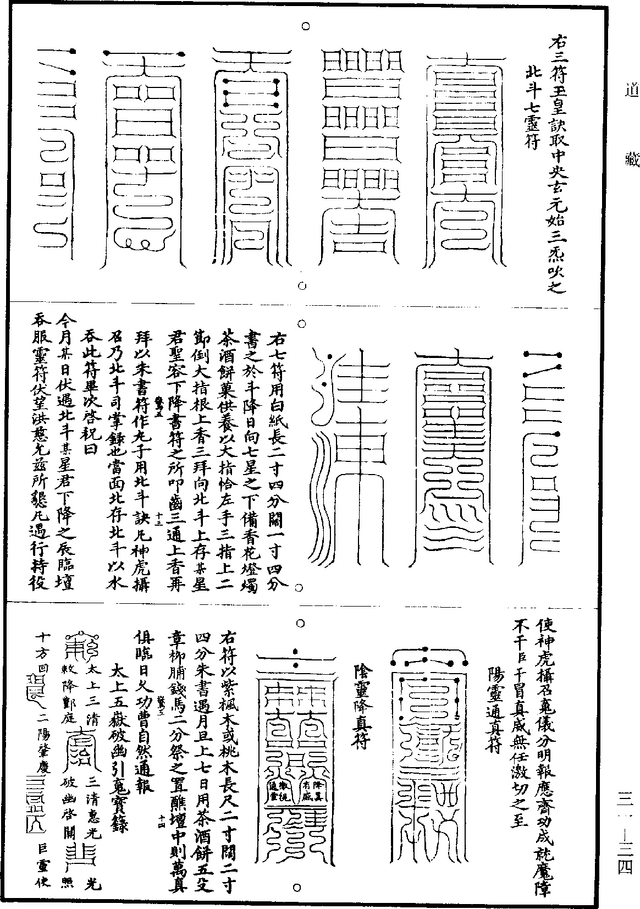 道藏
右三符玉皇訣取中央玄元始三炁吹之
北斗七靈符
右七符用白紙長二寸四分闊一寸四分
書之於斗降日向七星之下備香花燈燭
茶酒餅菓供養以大指恰左手三指上二
節倒大指根上香三拜向北斗上存某星
君聖容下降書符之所叩齒三通上香再
拜以朱書符作丸子用北斗訣凡神虎攝
召乃北斗司掌錄也當面北存北斗以水
吞此符畢次啓祝曰
今月某日伏遇北斗某星君下降之辰臨壇
吞服靈符伏望洪慈允茲所懇凡遇行持役
使神虎攝召鬼儀分明報應齋功成就魔障
不干
干冒真威無任激切之至
陽靈通真符
陰靈降真符
右符以紫楓木或桃木長尺二寸闊二寸
四分朱書遇月旦上七日用茶酒餅五分
章柳脯錢馬二分祭之置醮壇中則萬真
俱臨日久功曹自然通報
太上五嶽破幽引鬼寶籙
太上三清
敕降酆庭
三清惠光
破幽啓開
光
照
十方回
二陽肇慶
巨靈使
三一—三四